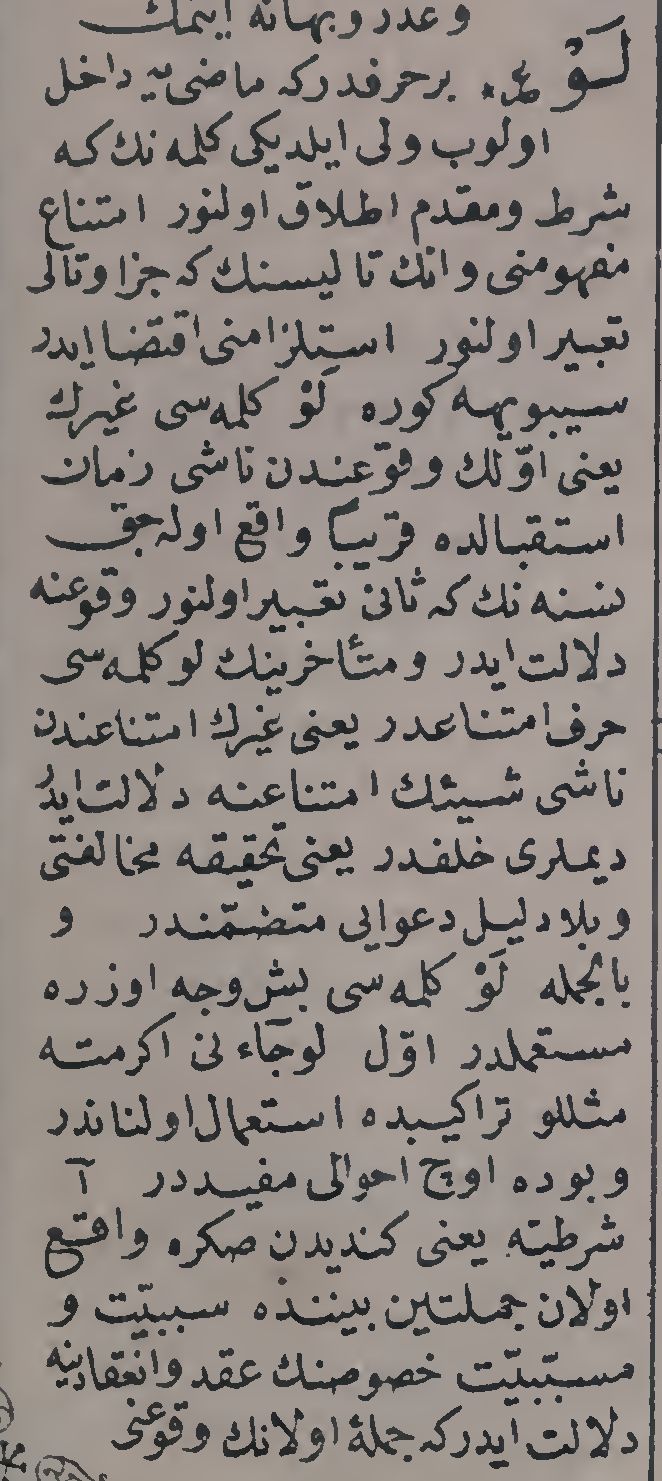 وعدر وبهانه ایتمك
لَوْ ع‍ـ بر حرفدر که ماضی یه داخل
اولوب ولی ایلدیکی کلمه نك که
شرط ومقدم اطلاق اولنور امتناع
مفهومنی وانك تالیسنك که جزا وتالی
تعبیر اولنور استلزامنی اقتضا ایدر
سیبویهه کوره لَوْ کلمه سی غیرك
یعنی اوّلك وقوعندن ناشی زمان
استقبالده قریبًا واقع اوله جق
نسنه نك که ثانی تعبیر اولنور وقوعنه
دلالت ایدر ومتأخرینك لو کلمه سی
حرف امتناعدر یعنی غیرك امتناعندن
ناشی شیئك امتناعنه دلالت ایدر
دیملری خلفدر یعنی تحقیقه مخالفتی
وبلا دلیل دعوایی متضمّندر و
بالجمله لَوْ کلمه سی بش وجه اوزره
مستعملدر اوّل لو جآءنی اکرمته
مثللو تراکیبده استعمال اولناندر
وبوده اوچ احوالی مفیددر آ
شرطیّه یعنی کندیدن صکره واقع
اولان جملتین بیننده سببیّت و
مسبّبیّت خصوصنك عقد وانعقادینه
دلالت ایدر که جملهٔ اولانك وقوعنی